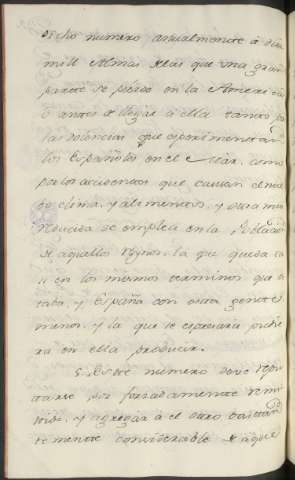 dicho numero anualmente à diez
mill Almas delas que una gran
parte se pierde en la America
ò antes de llegar à ella tanto por
las dolencias que experimentan
los Españoles en el Mar, como
por los accidentes que causan el mu-
do clima, y alementos, y otra mui
reducida se emplea en la Poblacion
de aquellos Reynos, la que queda ca-
si en los mismos terminos que es-
taba, y España con esta gente de
menos, y la que se esperaria pudie-
ra en ella producir.
5. Este numero deve repu-
tarse por forzadamente remi-
tido, y agregar à el otro bastan-
temente considerable de aque-